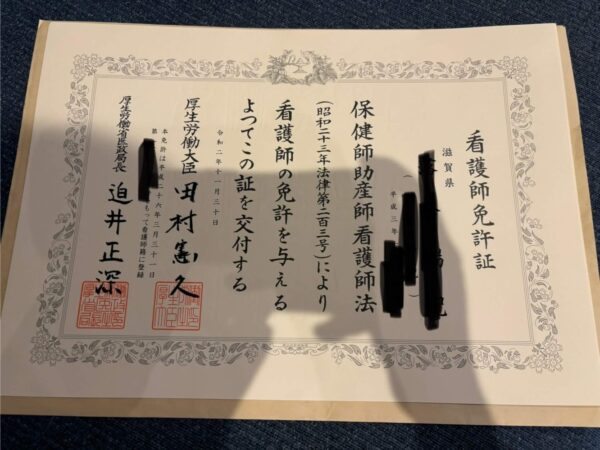 看護師免許証
滋賀県
平成三年
保健師助産師看護師法
(昭和二十三年法律第二百三号)により
看護師の免許を与える
よつてこの証を交付する
令和二年十一月三十日
厚生労働大臣 田村憲久
本免許は平成二十六年三月三十一日
第
もって看護師籍に登録
厚生労働省医政局長 迫井正深